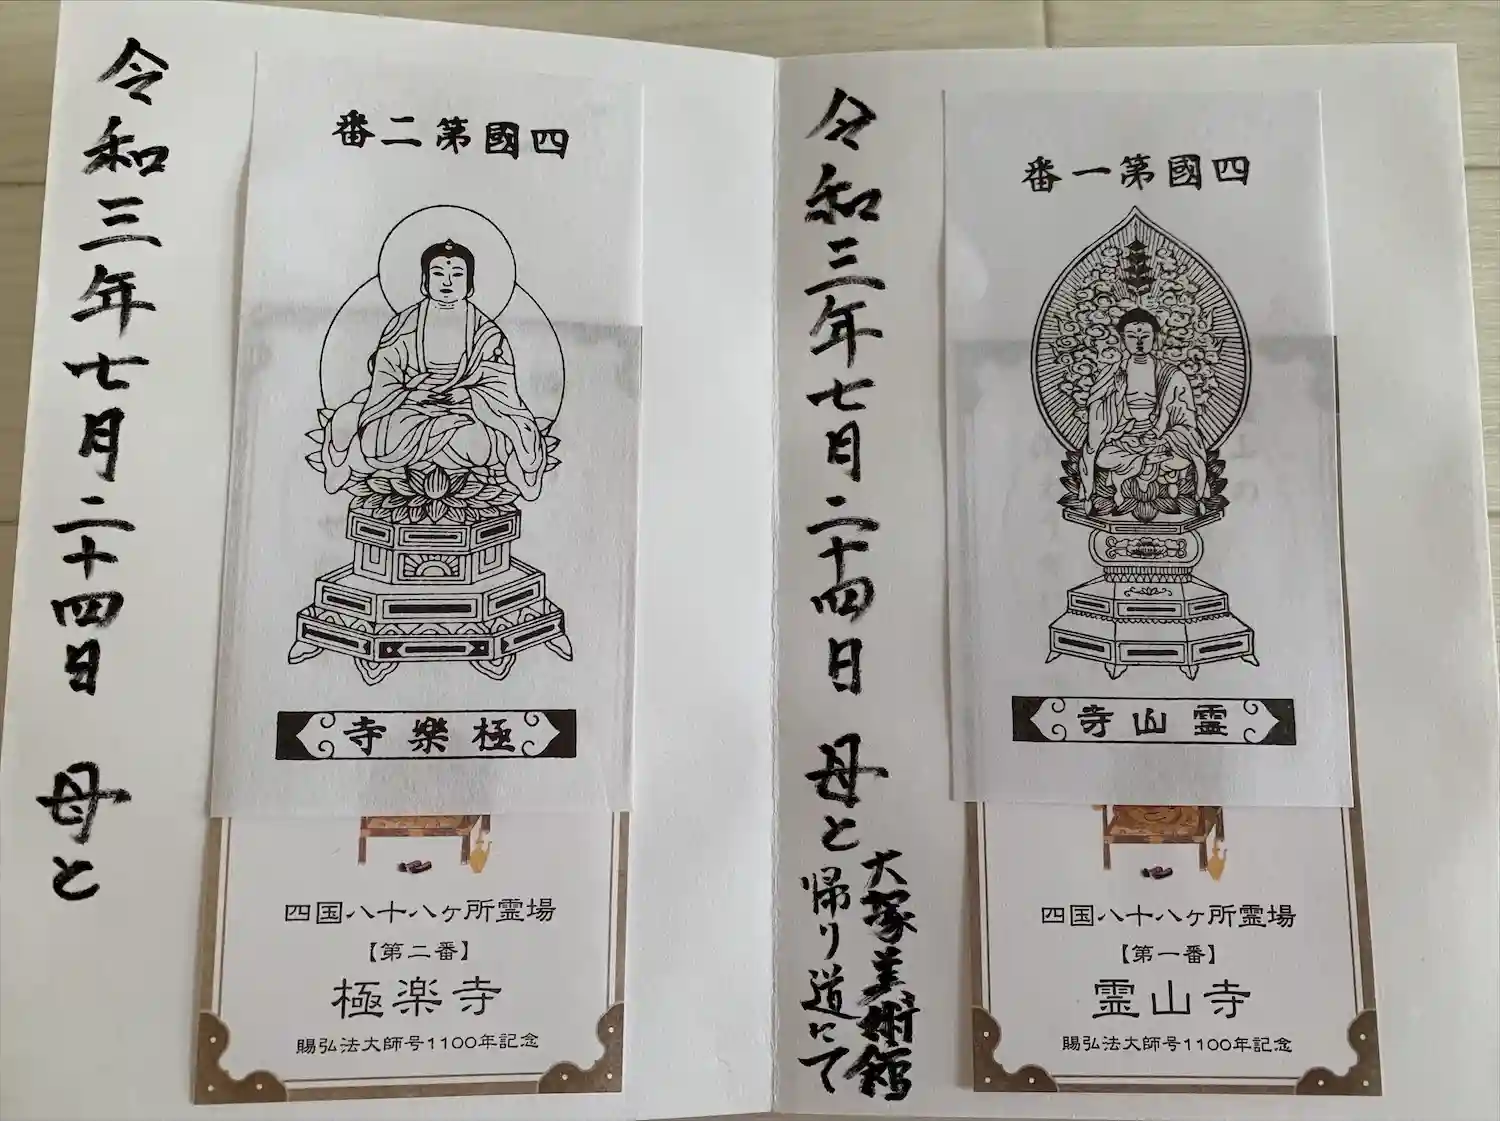 四國第一番
霊山寺
四国八十八ヶ所霊場
【第一番】
霊山寺
賜弘法大師号1100年記念
令和三年七月二十四日 母と
大塚美術館
帰り道にて
四國第二番
極樂寺
四国八十八ヶ所霊場
【第二番】
極楽寺
賜弘法大師号1100年記念
令和三年七月二十四日 母と